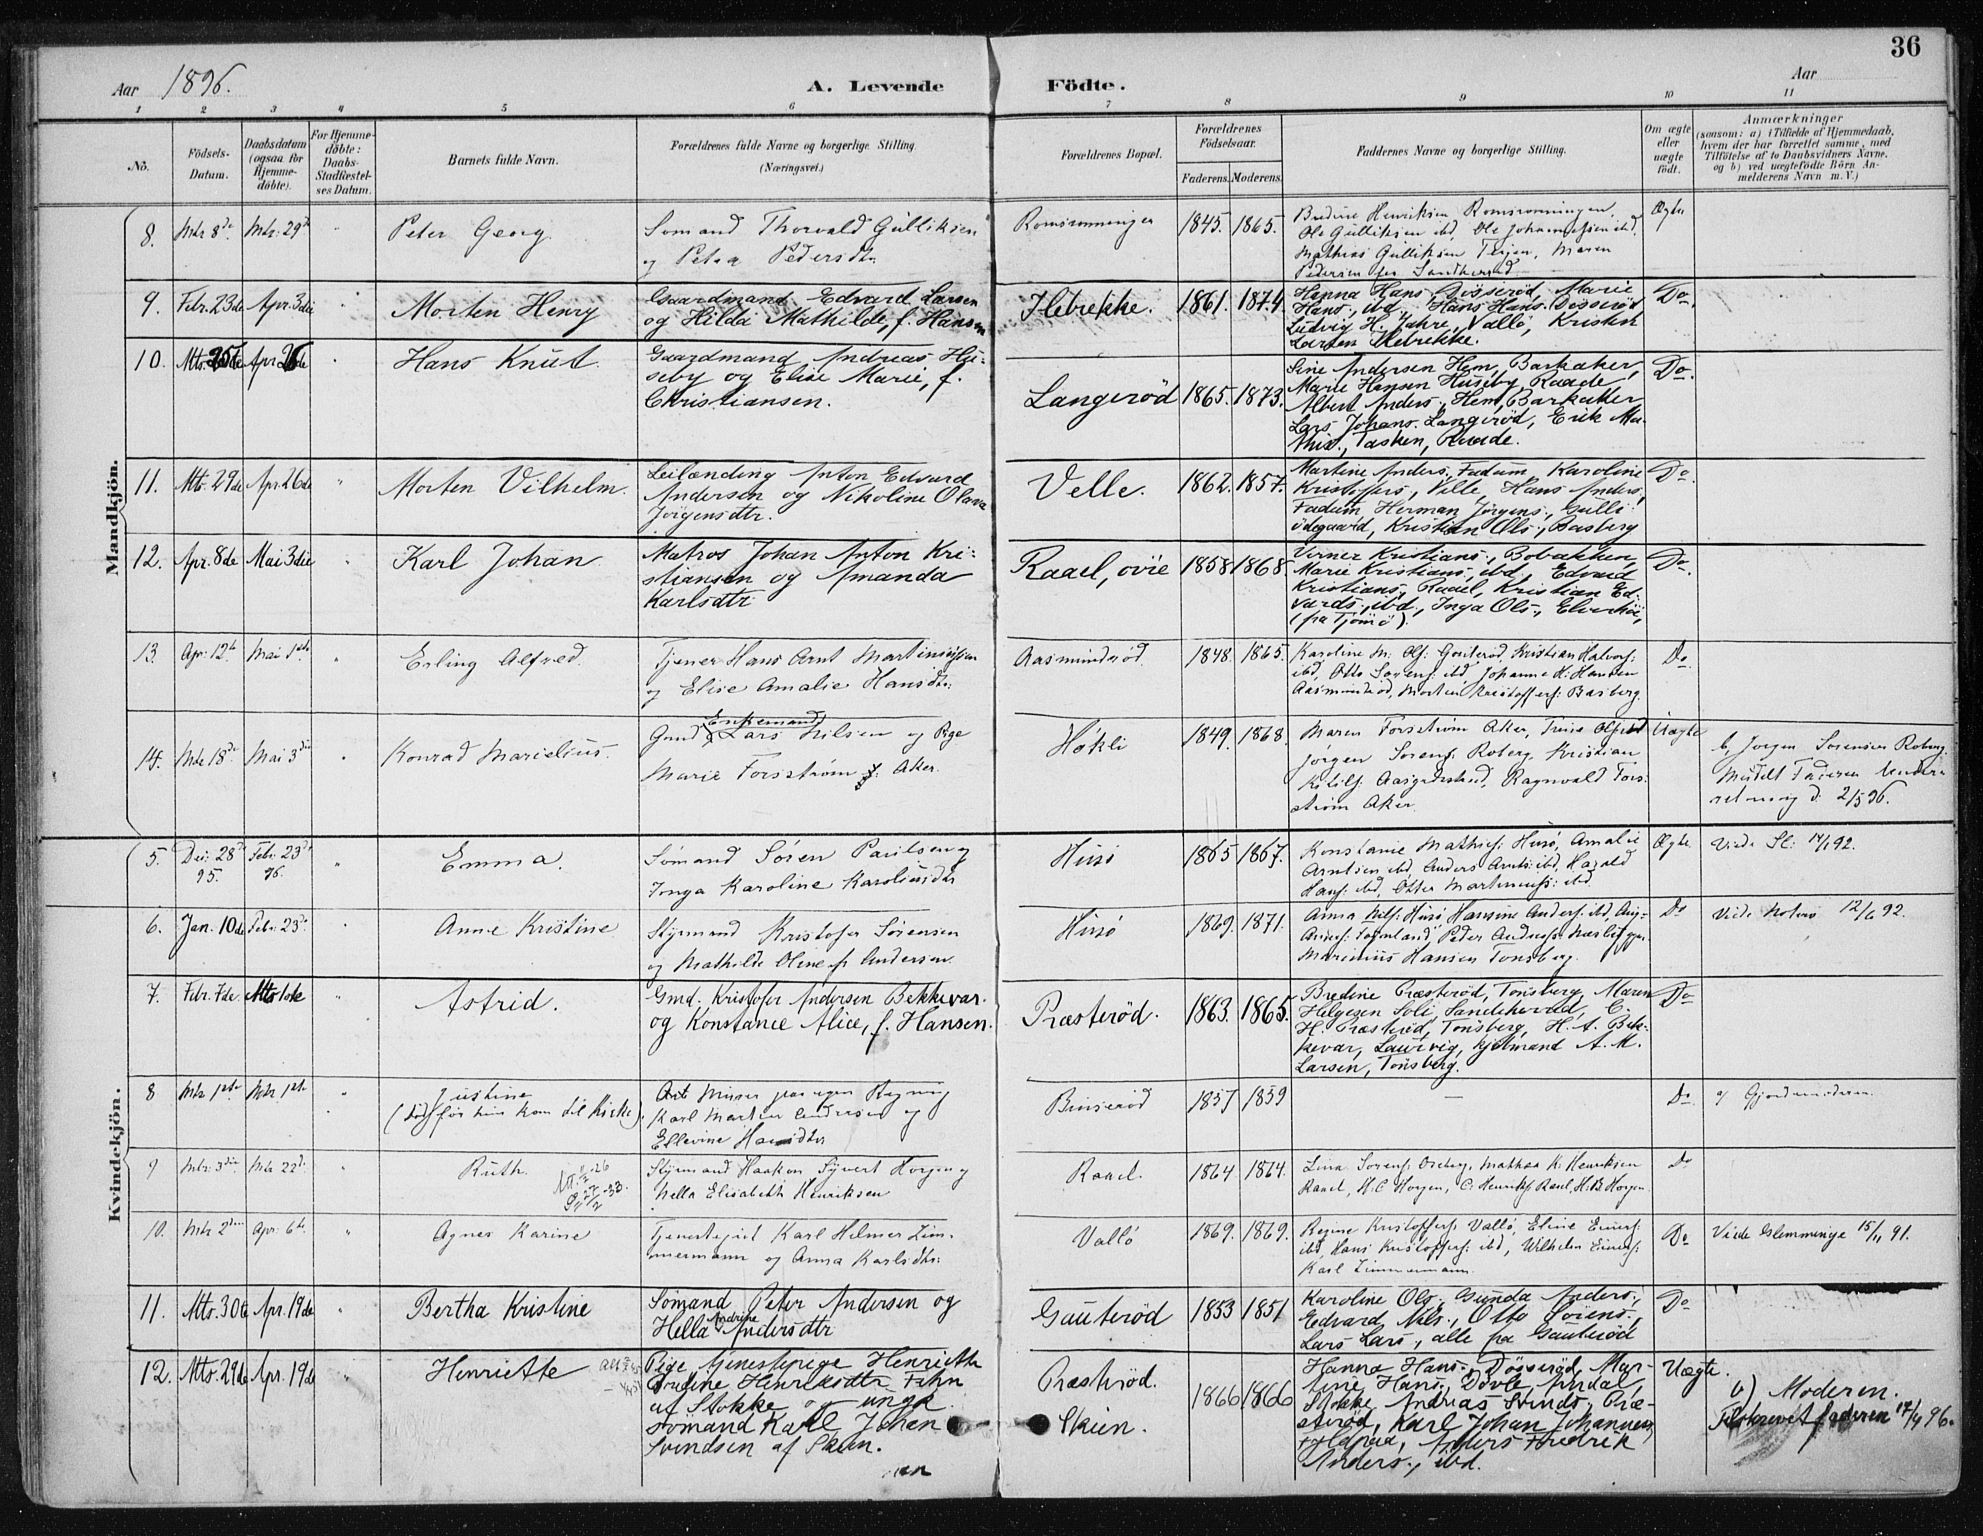 36
Aar 1896.
A. Levende Födte.
Aar
1 2 3 4 5 6 7 8 9 10 11
No.
Födsels-Datum.
Daabsdatum (ogsaa for Hjemme-döbte).
For Hjemme-döbte: Daabs-Stadfæstel-ses Datum.
Barnets fulde Navn.
Forældrenes fulde Navne og borgerlige Stilling. (Næringsvei.)
Forældrenes Bopæl.
Forældrenes Födselsaar.
Faderens. Moderens.
Faddernes Navne og borgerlige Stilling.
Om ægte eller uægte födt.
Anmærkninger
(saasom: a) i Tilfælde af Hjemmedaab,
hvem der har forrettet samme, med
Tilföielse af to Daabsvidners Navne,
og b) ved uægtefödte Börn An-
melderens Navn m. V.)
Mandkjön.
8. Mts 8de Mts. 29de Peter Georg
Sømand Thorvald Gulliksen
og Petra Pedersdtr.
Romsrønningen 1845. 1865.
Bredine Henriksen Romsrønningen,
Ole Gulliksen ibd, Ole Johannesen ibd,
Mathias Gulliksen Teien, Maren
Pedersen fra Sandherred
Ægte
9. Febr. 23de Apr. 3die Morten Henry
Gaardmand Edvard Larsen
og Hilda Mathilde, f. Hansen
Ilebrekke. 1861. 1874
Hanna Hans. Døsserød, Marie
Hans., ibd., Hans Hans. Døsserød
Ludvig H. Jahre, Vallø, Kristen
Larsen Ilebrekke.
Do.
10. Mts. 25de Apr. 26de Hans Knut.
Gaardmand Andreas Hu-
seby og Elise Marie, f.
Christiansen.
Langerød 1865. 1873.
Sine Andersen Hem, Barkaker,
Marie Hansen Huseby, Raade,
Albert Anders., Hem, Barkaker
Lars Johans. Langerød, Erik Ma-
this., Tasken, Raade.
Do.
11. Mts. 29de Apr. 26de Morten Vilhelm.
Leilænding Anton Edvard
Andersen og Nikoline Olava
Jörgensdtr.
Velle. 1862. 1857.
Martine Anders., Fadum, Karoline
Kristoffers, Velle, Hans Anders.
Fadum, Herman Jørgens., Gulli
ödegaard, Kristian Ols., Basberg
Do.
12. Apr. 8de Mai 3die Karl Johan
Matros Johan Anton Kri-
stiansen og Amanda
Karlsdtr.
Raael, övre 1858 1868.
Verner Kristians., Bobakken,
Marie Kristians., ibd., Edvard
Kristians., Raael, Kristian Ed-
vards., ibd., Inga Ols., Elverhöi,
(pa Tjömö).
Do.
13. Apr: 12te Mai 1ste Erling Alfred.
Tjener Hans Arnt Martiniussen
og Elise Amalie Hansdtr.
Aasmundrød 1848. 1865.
Karoline M. Ols: Gauterød, Kristian Halvors:
ibd, Otto Sørens: ibd, Johanne H. Hansen
Aasmundrød, Morten Kristoffers: Basberg.
Do.
14. Mts 18de Mai 3die Konrad Marielius.
Enkemand
Gmd Lars Nilsen og Pige
Marie Forsstrøm f: Aker.
Høkli 1849. 1868.
Maren Forsstrøm Aker, Trine
Jørgen Sørens: Roberg, Kristian
Aasgaardstrand, Ragnvald Fors-
strøm Aker.
Uægte
b, Jørgen Sørensen Roberg.
Meddelt Faderen Under-
retning d. 2/5 96.
Kvindekjön.
5. Dec: 28de 95. Febr. 23de 96. Emma.
Sømand Søren Paulsen og
Inga Karoline Karoliusdtr
Husø 1865 1867.
Konstanse Mathis: Husø, Amalie
Arntsen ibd, Anders Arnts: ibd, Harald
Hans: ibd, Otter Martinius: ibd
Ægte Viede Sl: 17/1 92.
6. Jan. 10de Febr. 23de Anne Kristine
Styrmand Kristofer Sørensen
og Mathilde Oline f: Andersen
Husø 1869. 1871.
Anna Nils: Husø Hansine Anders: ibd,
Marinius Hansen Tønsberg.
Do Viede Nøterø 12/6 92.
7. Febr. 7de. Mts 1ste Astrid.
Gmd. Kristofer Andersen Bekkevar.
og Konstance Alice, f. Hansen.
Præsterød. 1863. 1865.
Bredine Præsterød, Tönsberg, Maren
Helgesen Soli, Sandeherred, C.
H. Præsterød, Tönsberg, H. A. Bek-
kevar, Laurvig, kjøbmand A. M.
Larsen, Tönsberg.
Do
8 Mts 1ste Mts 1ste Justine
(död før hun kom til Kirke).
Karl Martin Andersen og
Ellevine Hansdtr
Binserød 1857 1859
—
Do a/ Gjordemoderen.
9 Mts. 3die Mts 22de Ruth.
Styrmand Haakon Syvert Horgen og
Nella Elisabeth Henriksen
Raael. 1864 1864.
Lina Sørens: Oseberg, Mathea K. Henriksen
Raael, H. C Horgen, C. Henriks: Raael, H. B. Horgen.
Do
10. Mts 2den Apr: 6te Agnes Karine
Tjenestepige Karl Helmer Zim-
mermann og Anna Karlsdtr:
Vallö 1869. 1869.
Regine Kristoffers: Vallö, Eline Einers:
ibd, Hans Kristoffers: ibd, Wilhelm Einers:
Karl Zimmermann.
Do Viede Glemminge 15/11 91.
11. Mts. 30te Apr. 19de Bertha Kristine
Sömand Peter Andersen og
Andrine
Hella Andersdtr
Gauterød 1853 1851
Karoline Ols., Gunda Anders.,
Edvard Nils., Otto Sörens.,
Lars Lars., alle pa Gauterød
Do
12. Mts. 29de Apr. 19de Henriette
Pige tjenestepige Henriette
Andine Henriksdtr Fehn
af Stokke og ungk.
sömand Karl Johan
Svendsen af Skien.
Præsterød.
Skien. 1866 1866
Hanna Hans., Døsserød, Mar-
tine Hans. Dovle Arndal,
Stokke, Andreas Svends., Præ-
sterød, Karl Johan Johannes.,
Anders Fredrik
Anders., ibd.
Uægte.
b) Moderen.
Tilskrevet faderen 17/4 96.